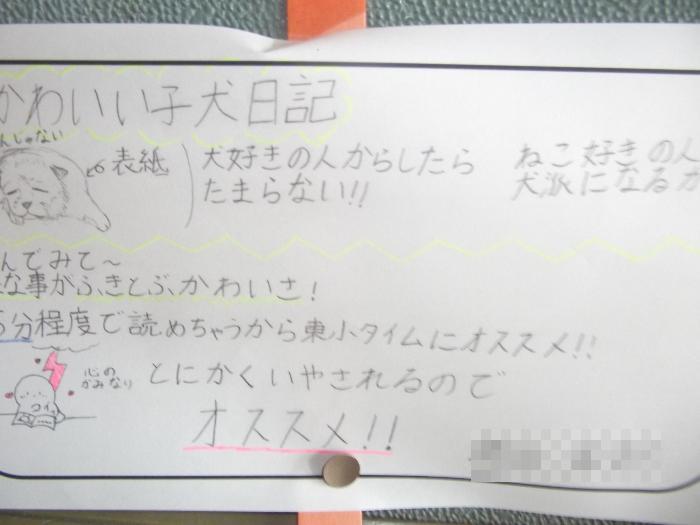 かわいい子犬日記
んじゃない
表紙
犬好きの人からしたら
たまらない!!
ねこ好きの人
犬派になるか
んでみて～
な事がふきとぶかわいさ!
5分程度で読めちゃうから東小タイムにオススメ!!
心の
かみなり
とにかくいやされるので
オススメ!!